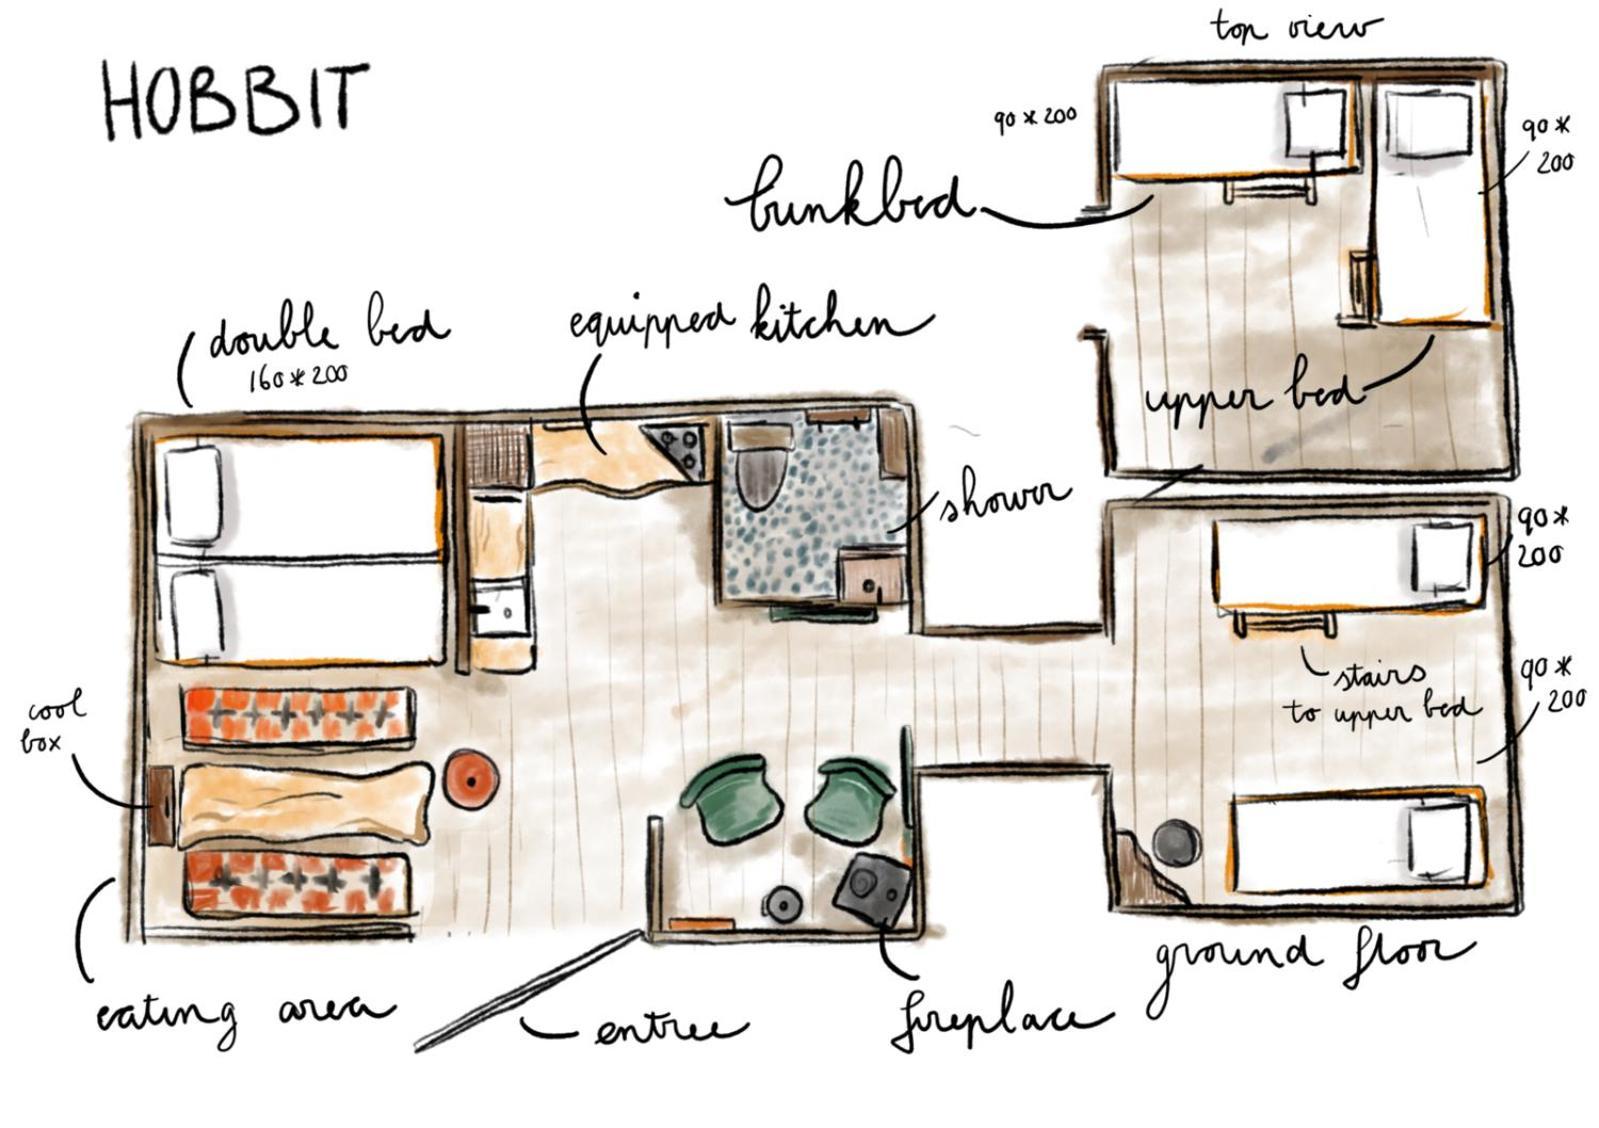 HOBBIT
top view
90*200
90*
200
bunkbed
upper bed
double bed
160*200
equipped kitchen
shower
90*
200
stairs
to upper bed
90*
200
cool
box
eating area
entree
fireplace
ground floor